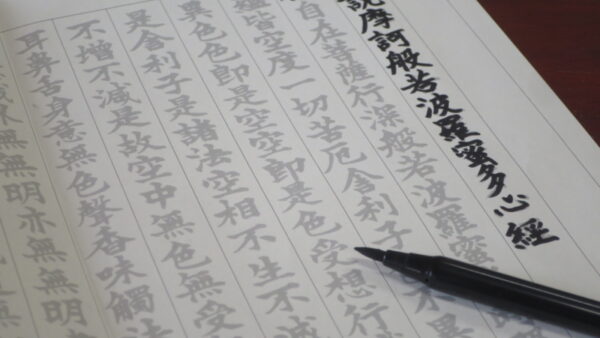 摩訶般若波羅蜜多心經
自在菩薩行深般若波羅蜜
蘊皆空度一切苦厄舍利子 不異
異色色即是空空即是色受想行
是舍利子是諸法空相不生不滅
不增不減是故空中無色無受
耳鼻舌身意無色聲香味觸法
無無明亦無無明